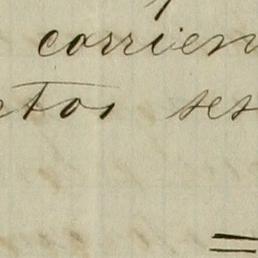 corrien
etos ses